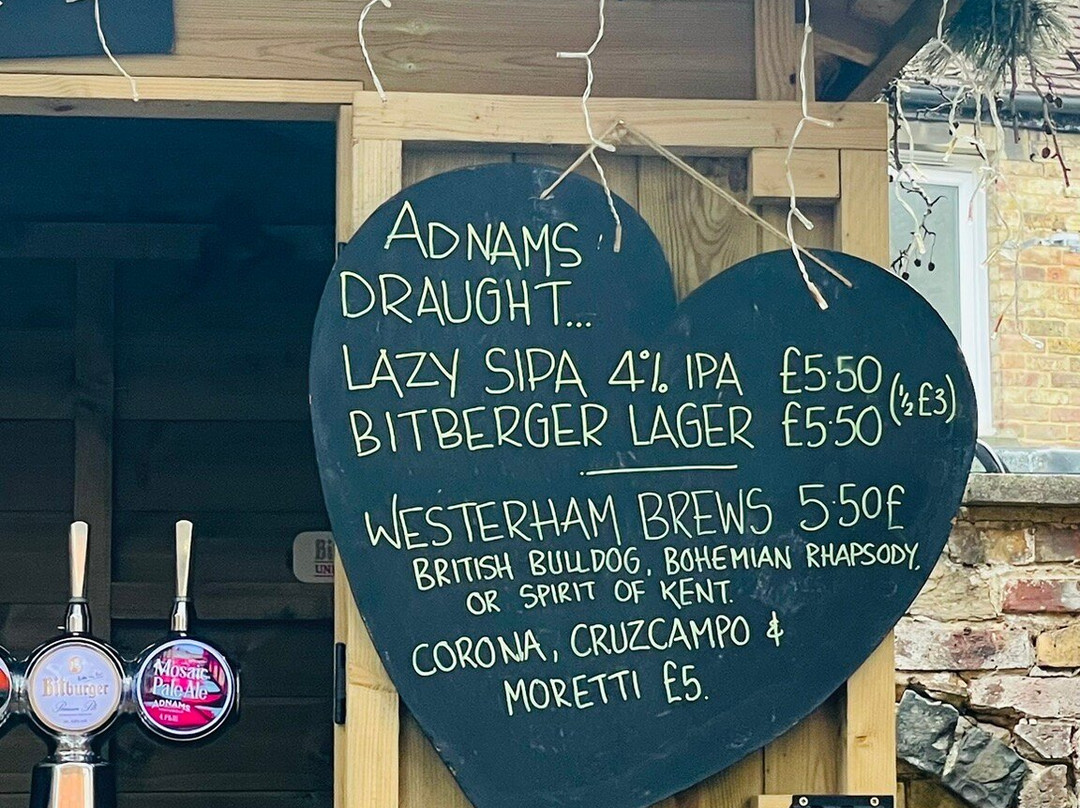 ADNAMS
DRAUGHT...
LAZY SIPA 4% IPA £5.50
BITBERGER LAGER £5.50
(½ £3)
WESTERHAM BREWS 5.50£
BRITISH BULLDOG, BOHEMIAN RHAPSODY,
OR SPIRIT OF KENT.
CORONA, CRUZCAMPO &
MORETTI £5.
Bitburger
Premium Pils
Mosaic
Pale Ale
ADNAMS